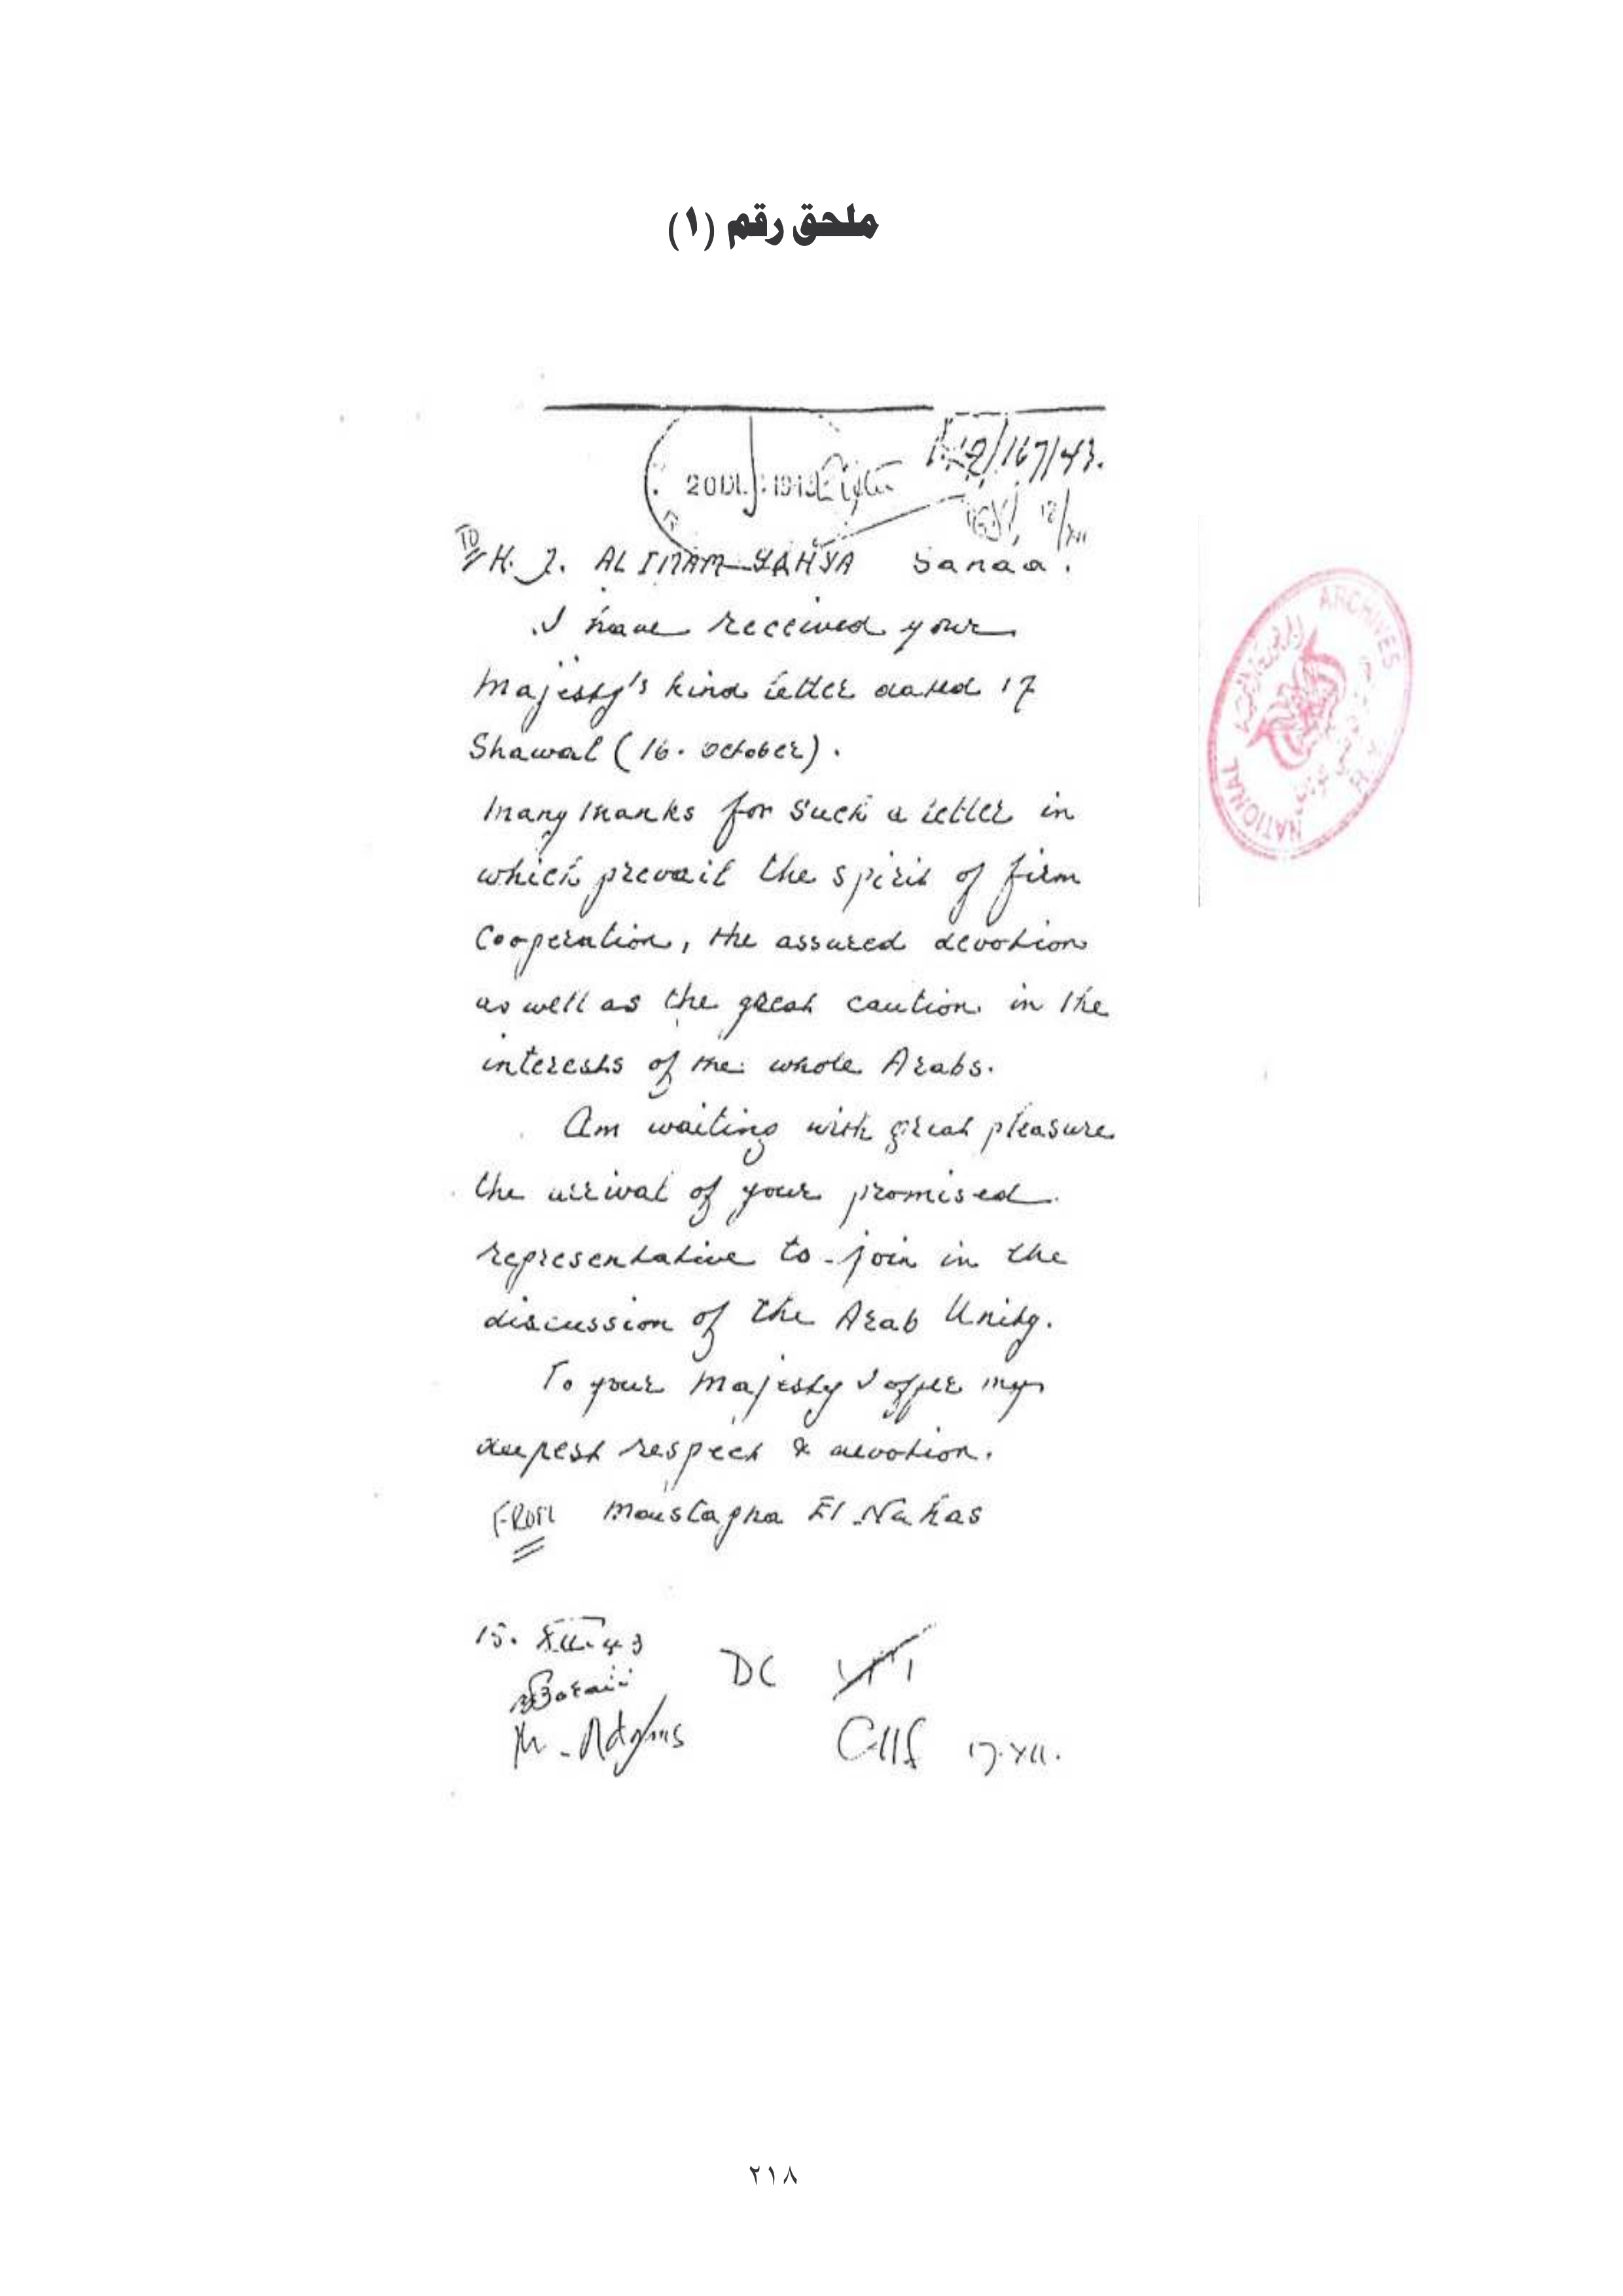 ملحق رقم (١)
/167/43.
TO H. J. AL IMAM YAHYA Sanaa.
I have received your
Majesty's kind letter dated 17
Shawal (16. October).
Many thanks for such a letter in
which prevail the spirit of firm
Cooperation, the assured devotion
as well as the great caution in the
interests of the whole Arabs.
Am waiting with great pleasure
the arrival of your promised
representative to join in the
discussion of the Arab Unity.
To your Majesty I offer my
deepest respect & devotion.
FROM Moustapha El Nahas
15. XII. 43
DC
17. XII.
NATIONAL ARCHIVES
٢١٨